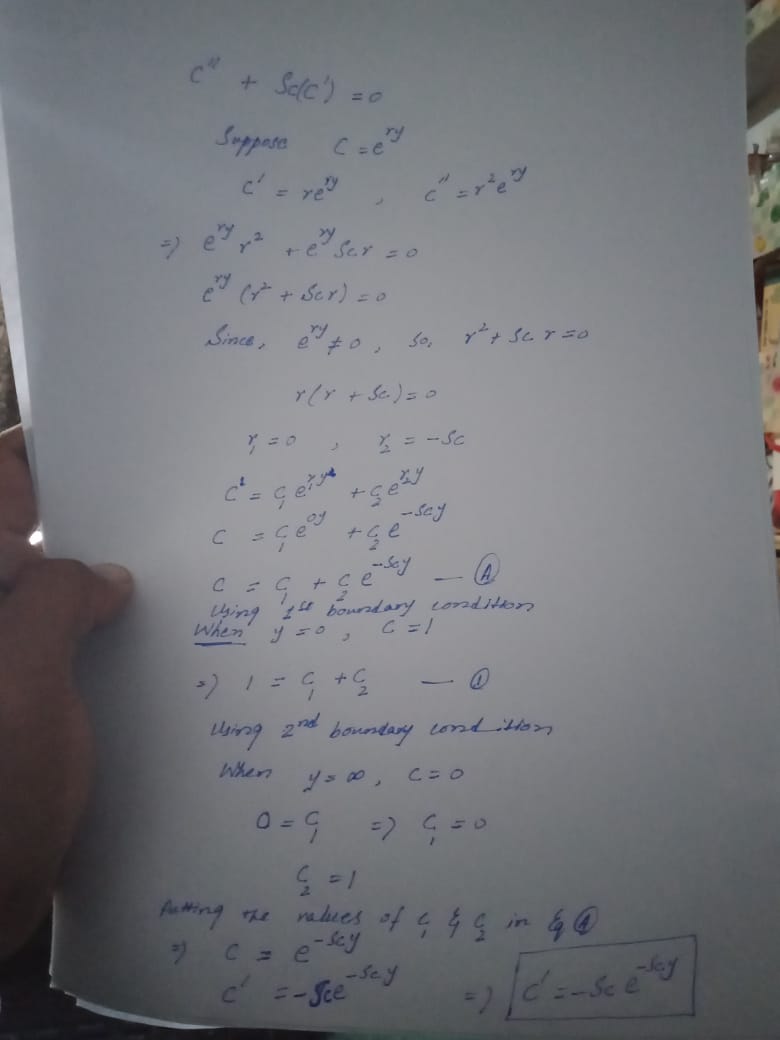 C'' + Sc(C') = 0
Suppose C = e^{ry}
C' = re^{ry} , C'' = r²e^{ry}
=> e^{ry} r² + e^{ry} Sc r = 0
e^{ry} (r² + Sc r) = 0
Since, e^{ry} ≠ 0 , So, r² + Sc r = 0
r(r + Sc) = 0
r₁ = 0 , r₂ = -Sc
C = C₁e^{r₁y} + C₂e^{r₂y}
C = C₁e^{0y} + C₂e^{-Scy}
C = C₁ + C₂e^{-Scy} — Ⓐ
Using 1st boundary condition
When y = 0 , C = 1
=> 1 = C₁ + C₂ — ①
Using 2nd boundary condition
When y = ∞ , C = 0
0 = C₁ => C₁ = 0
C₂ = 1
Putting the values of C₁ & C₂ in Eq Ⓐ
=> C = e^{-Scy}
C' = -Sce^{-Scy} => C' = -Sc e^{-Scy}